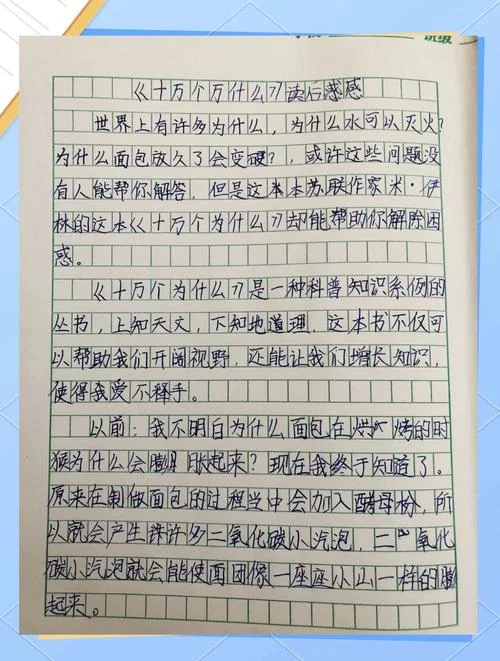 班级
《十万个万什么》读后感感
世界上有许多为什么,为什么水可以灭火?
为什么面包放久了会变硬?,或许这些问题没
有人能帮你解答,但是这本本苏联作家米·伊
林的这本《十万个为什么》却能帮助你解除困
惑。
《十万个为什么》是一种科普知识系例的
丛书,上知天文,下知地道理,这本书不仅可
以帮助我们开阔视野,还能让我们增长知识,
使得我爱不释手。
以前:我不明白为什么面包在烘火烤的时
候为什么会膨胀起来?现在我终于知道了。
原来在制做面包的过程当中会加入酵母粉,所
以就会产生许多二氧化碳小汽泡,二氧化
碳小汽泡就会能使面团像一座座小山一样的膨
起来。